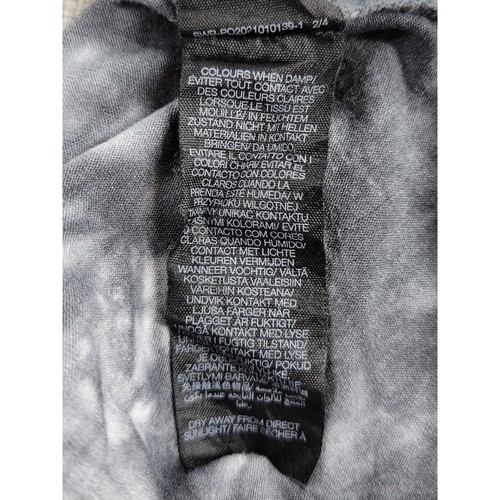 SWR-PO2021010139-1 2/4
COLOURS WHEN DAMP/
EVITER TOUT CONTACT AVEC
DES COULEURS CLAIRES
LORSQUE LE TISSU EST
MOUILLÉ/ IN FEUCHTEM
ZUSTAND NICHT MIT HELLEN
MATERIALIEN IN KONTAKT
BRINGEN/ DA UMIDO
EVITARE IL CONTATTO CON I
COLORI CHIARI/ EVITAR EL
CONTACTO CON COLORES
CLAROS CUANDO LA
PRENDA ESTÉ HÚMEDA/ W
PRZYPADKU WILGOTNEJ
UNIKAĆ KONTAKTU
JASNYMI KOLORAMI/ EVITE
O CONTACTO COM CORES
CLARAS QUANDO HÚMIDO/
CONTACT MET LICHTE
KLEUREN VERMIJDEN
WANNEER VOCHTIG/ VÄLTÄ
KOSKETUSTA VAALEISIIN
VÄREIHIN KOSTEANA/
UNDVIK KONTAKT MED
LJUSA FÄRGER NÄR
PLAGGET ÄR FUKTIGT/
UNNGÅ KONTAKT MED LYSE
FUGTIG TILSTAND/
KONTAKT MED LYSE
JE POKUD
ZABRAŇTE
SVĚTLÝMI BARVAMI/
免接触浅色物
للألوان الفاتحة عندما يكون
رطبا
DRY AWAY FROM DIRECT
SUNLIGHT/ FAIRE SÉCHER À